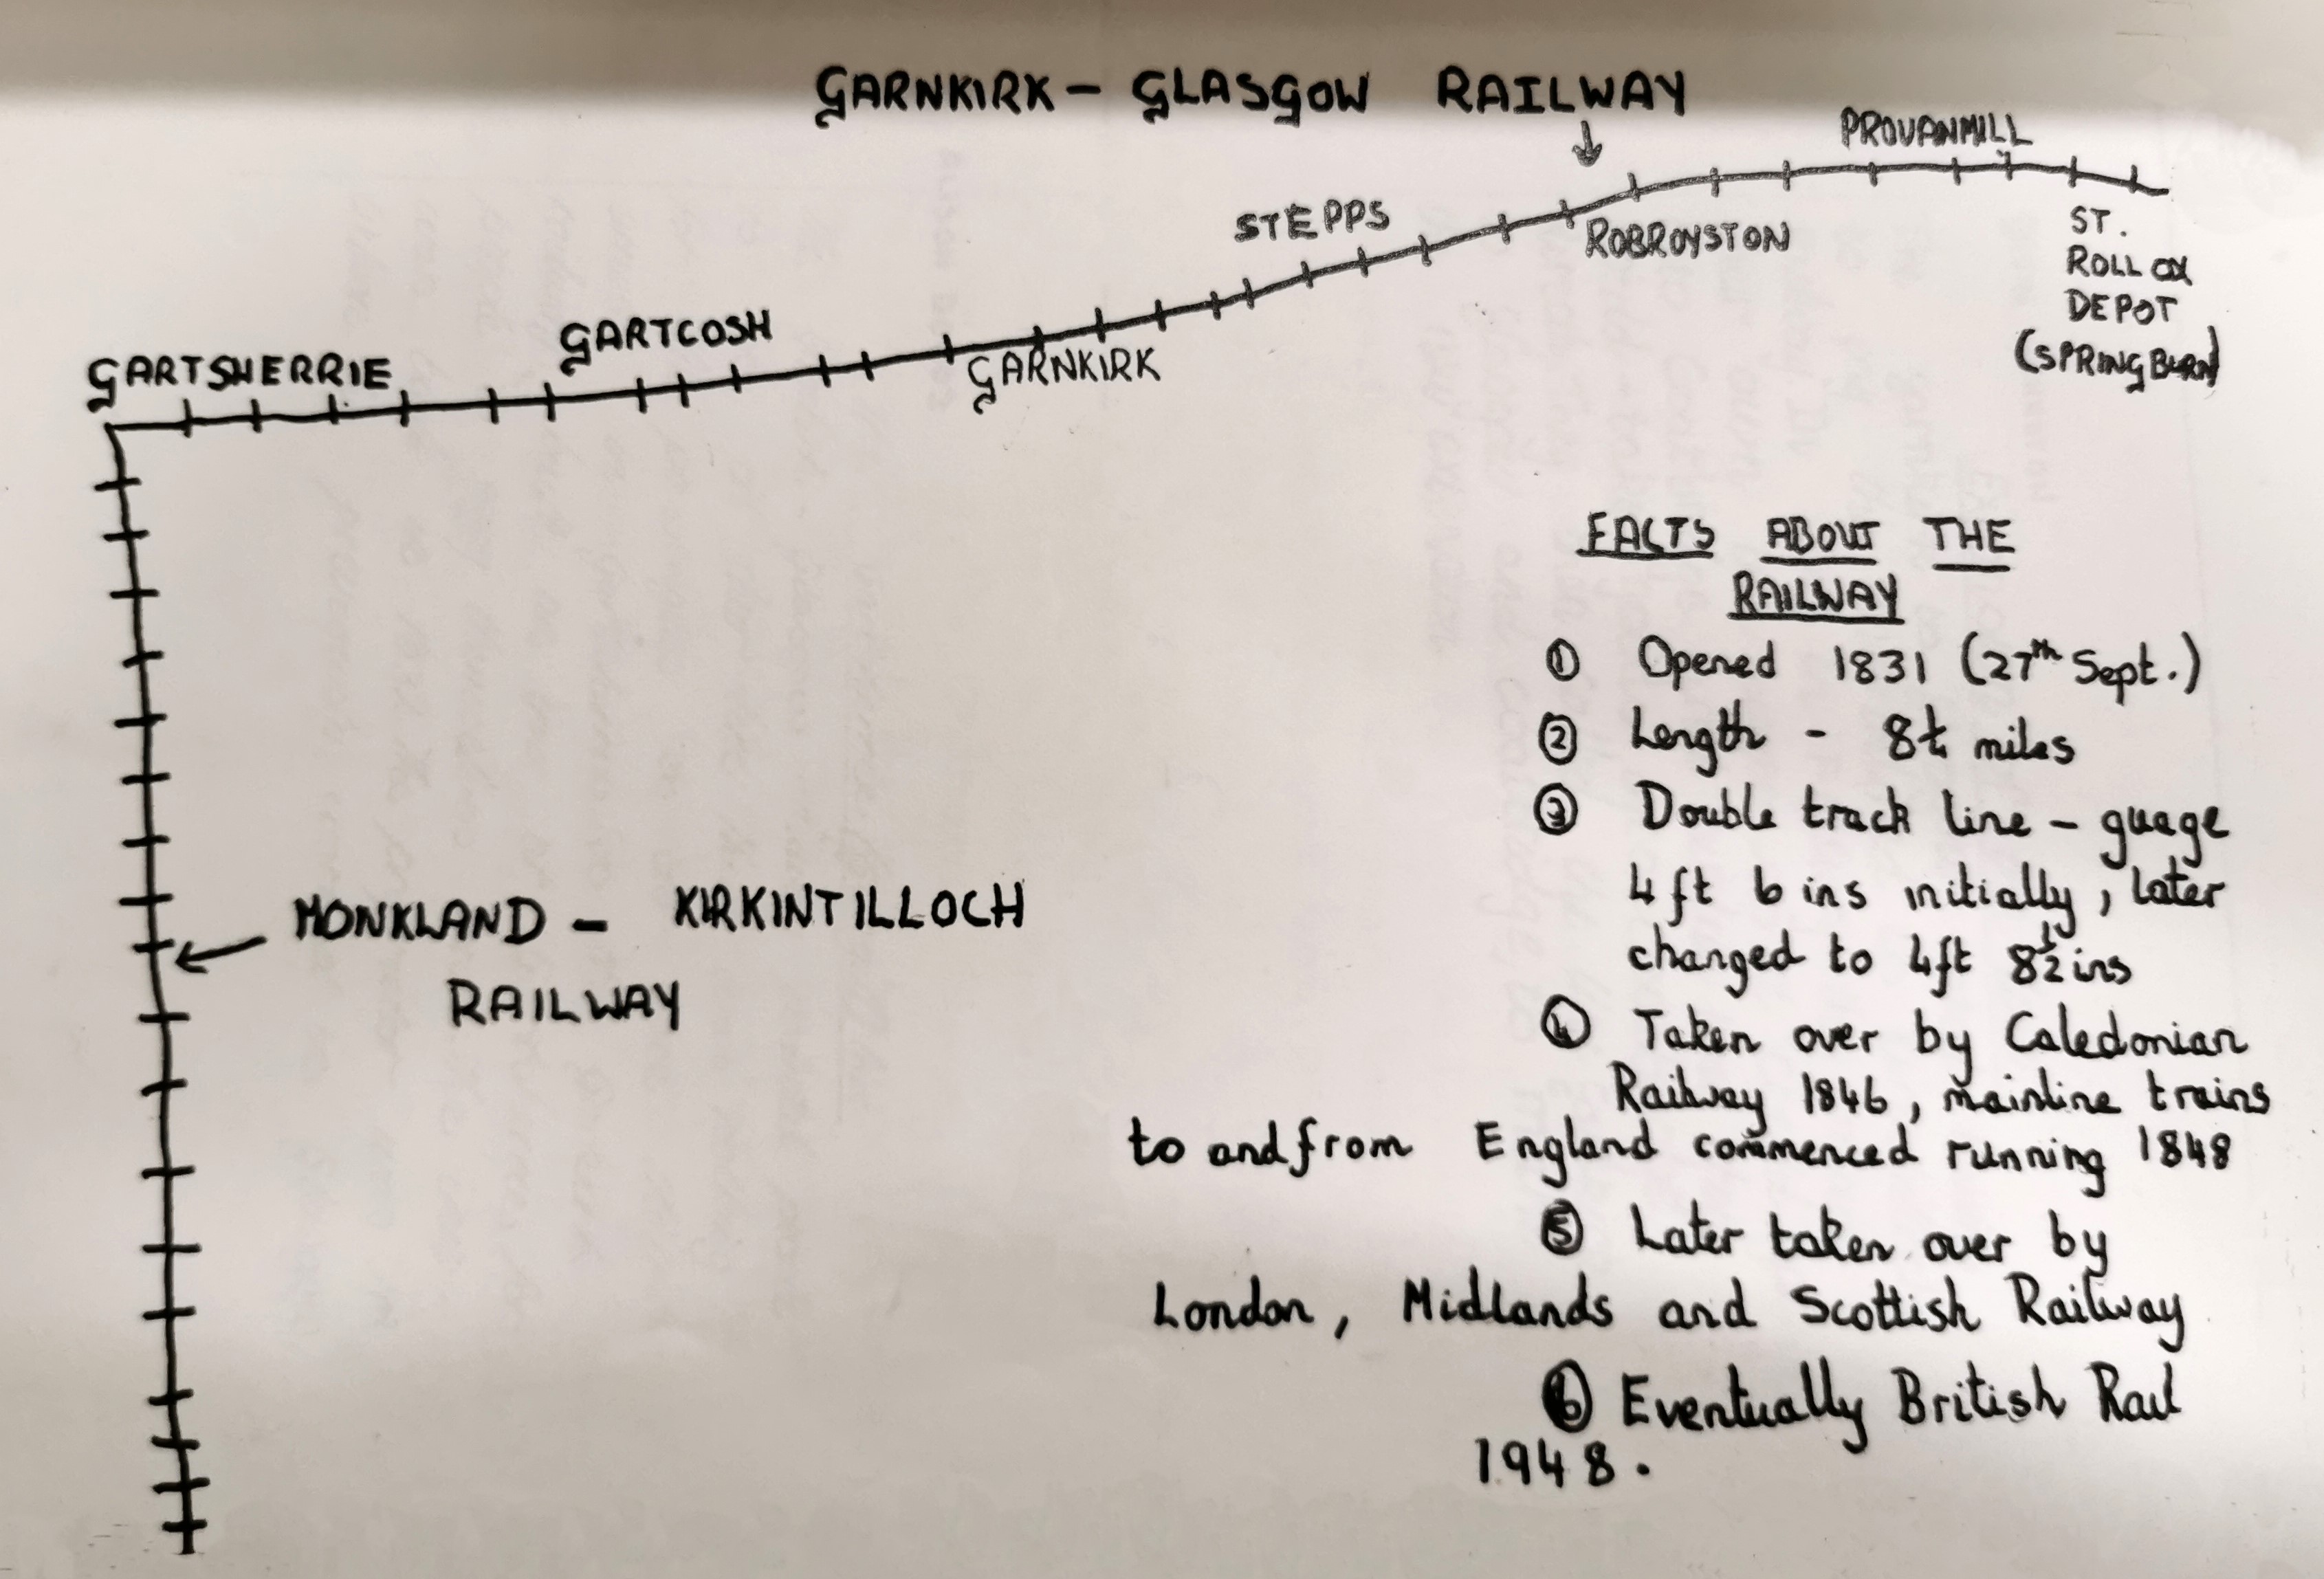 GARNKIRK - GLASGOW RAILWAY
PROVANMILL
STEPPS
ROBROYSTON
ST.
ROLLOX
DEPOT
(SPRINGBURN)
GARTCOSH
GARNKIRK
GARTSHERRIE
MONKLAND - KIRKINTILLOCH
RAILWAY
FACTS ABOUT THE
RAILWAY
① Opened 1831 (27th Sept.)
② Length - 8¼ miles
③ Double track line - guage
4ft 6 ins initially, later
changed to 4ft 8½ ins
④ Taken over by Caledonian
Railway 1846, mainline trains
to and from England commenced running 1848
⑤ Later taken over by
London, Midlands and Scottish Railway
⑥ Eventually British Rail
1948.